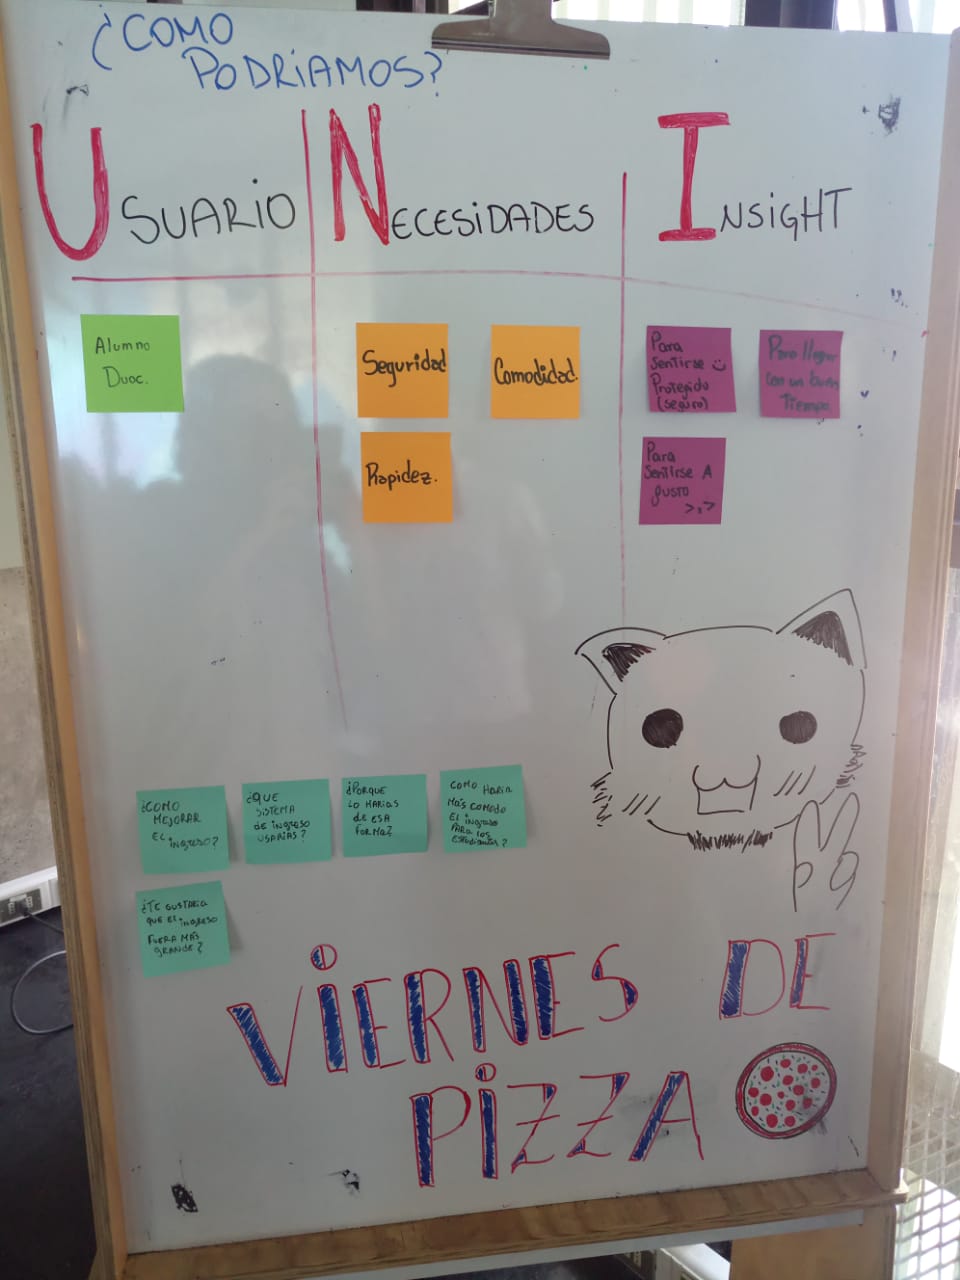 ¿COMO
PODRIAMOS?
USUARIO
NECESIDADES
INSIGHT
Alumno
Duoc.
Seguridad
Comodidad.
Rapidez.
Para
Sentirse
Protegido
(seguro)
Para llegar
con un buen
Tiempo.
Para
Sentirse A
gusto
>,>
¿COMO
MEJORAR
EL ingreso?
¿QUE
SISTEMA
de ingreso
USARIAS?
¿PORQUE
LO HARIAS
de ESA
FORMA?
COMO HARIA
MÁS COMODO
EL ingreso
PARA los
Estudiantes?
¿TE GUSTARIA
QUE EL ingreso
FUERA MÁS
grande?
VIERNES DE
PIZZA